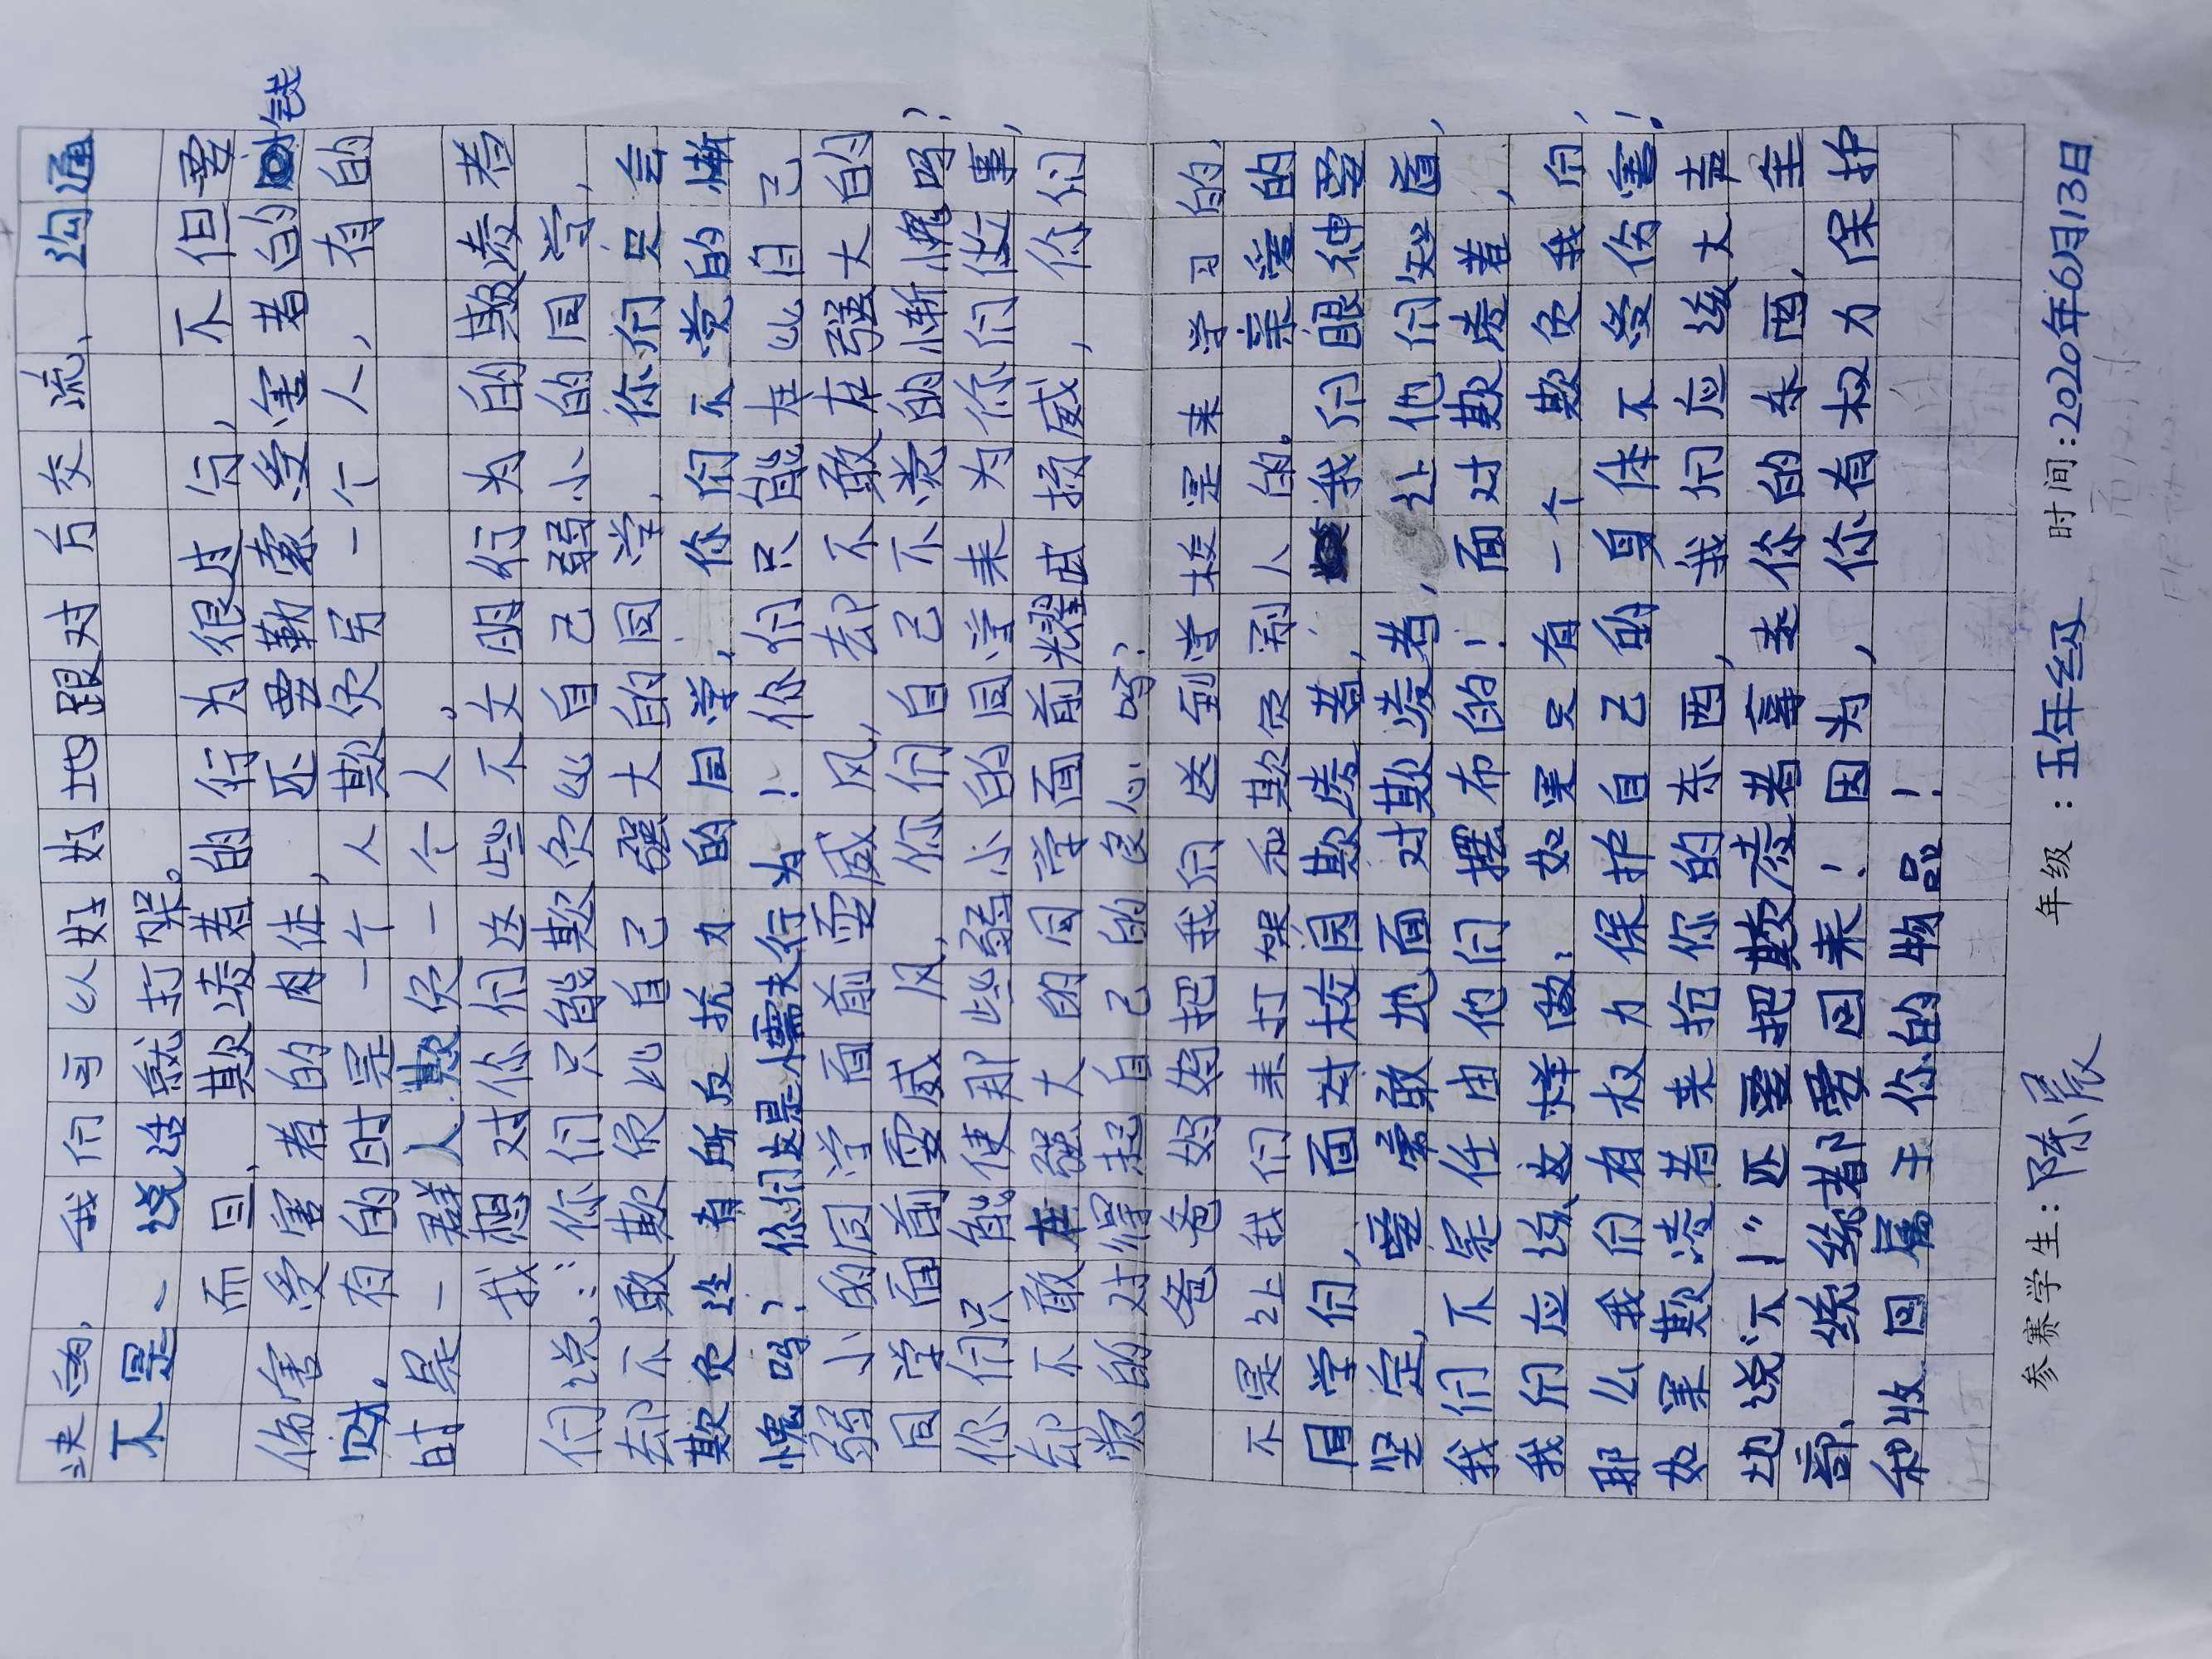 决的，我们可以好好地跟对方交流、沟通
不是一说话就打架。
而且，欺凌者的行为很过分，不但要
伤害受害者的肉体，还要勒索受害者的钱
财。有的时是一个人欺负另一个人，有的
时是一群人欺负一个人。
我想对你们这些不文明行为的欺凌者
们说：：你们只能欺负比自己弱小的同学，
却不敢欺负比自己强大的同学，你们只会
欺负没有所反抗力的同学，你们不觉的惭
愧吗？你们这是懦夫行为！你们只能在比自己
弱小的同学面前耍威风，却不敢在强大的
同学面前耍威风，你们自己不觉的惭愧吗？
你们只能使那些弱小的同学来为你们做事，
却不敢在强大的同学面前耀武扬威，你们
觉的对得起自己的良心吗？
爸爸妈妈把我们送到学校是来学习的，
不是让我们来打架和欺负别人的。亲爱的
同学们，面对校园欺凌者，我们眼神要
坚定，要勇敢地面对欺凌者，让他们知道，
我们不是任由他们摆布的！面对欺凌着，
我们应该这样做：如果只有一个欺负我们，
那么我们有权力保护自己的身体不受伤害！
如果欺凌着来抢你的东西，我们应该大声
地说“不！”还要把欺凌者拿走你的东西，全
部、统统都要回来！因为，你有权力保护
和收回属于你的物品！
参赛学生：陈展 年级：五年级 时间：2020年6月13日